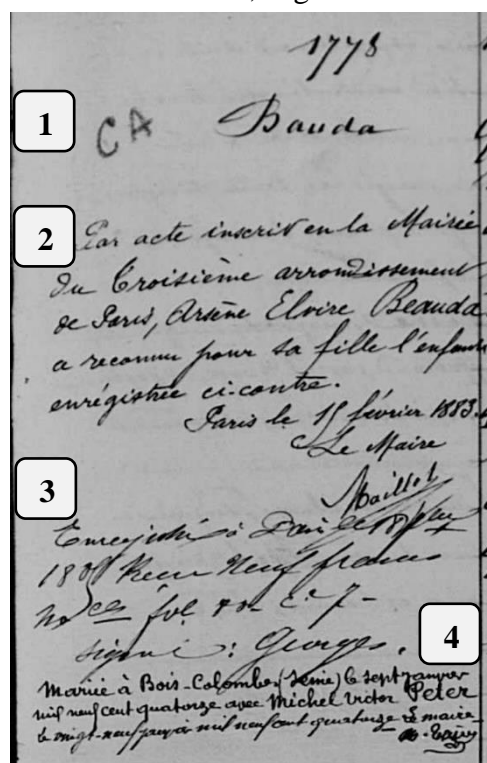 1778
1
CA
Bauda
2
Par acte inscrit en la Mairie
du Troisième arrondissement
de Paris, Arsène Elvire Beauda
a reconnu pour sa fille l'enfant
enrégistrée ci-contre.
Paris le 15 février 1883.
Le Maire
3
Maillet
Enregistré à Paris le
188 Recu Neuf francs
fol
signé : Georges.
4
Mariée à Bois-Colombes (Seine) le sept janvier
mil neuf cent quatorze avec Michel Victor Peter
le vingt-neuf janvier mil neuf cent quatorze Le maire